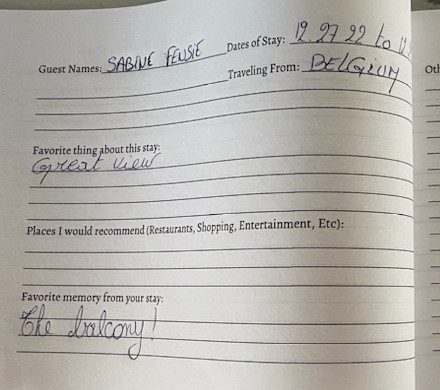 Guest Names: SABINE FENSIE Dates of Stay: 12 27 22 to 12
Traveling From: BELGIUM
Favorite thing about this stay:
Great view
Places I would recommend (Restaurants, Shopping, Entertainment, Etc):
Favorite memory from your stay:
The balcony!
Oth